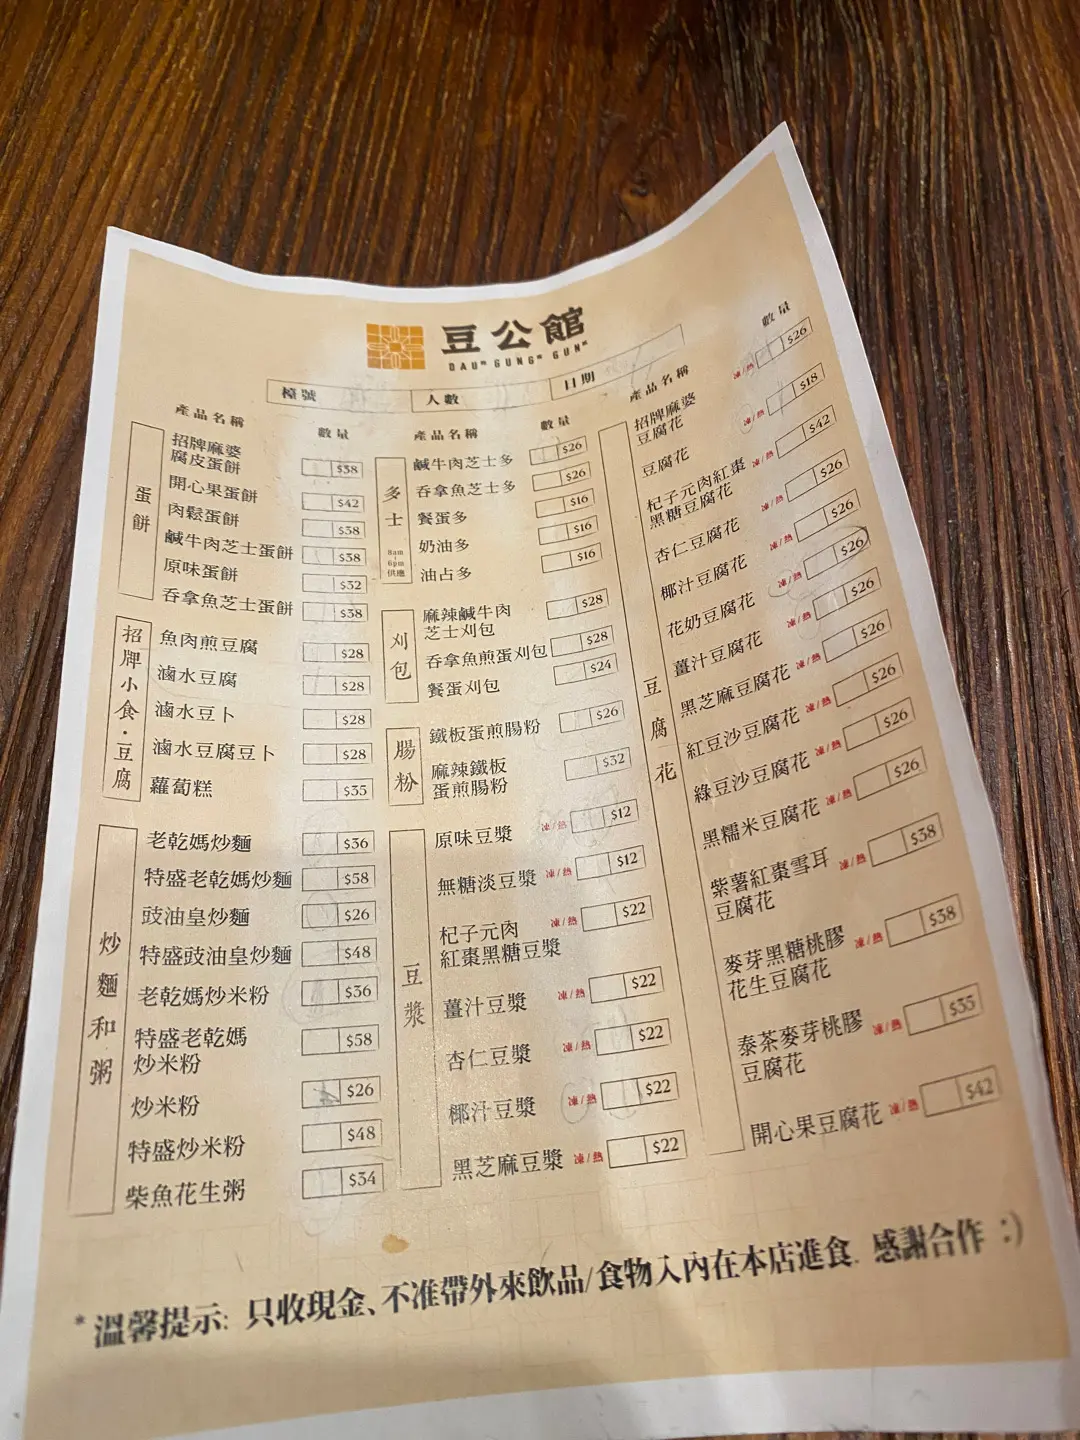 豆公館
DAU⁶ GUNG¹ GUN²
檯號
人數
日期
產品名稱
數量
蛋餅
招牌麻婆
腐皮蛋餅 $38
開心果蛋餅 $42
肉鬆蛋餅 $38
鹹牛肉芝士蛋餅 $38
原味蛋餅 $32
吞拿魚芝士蛋餅 $38
招牌小食・豆腐
魚肉煎豆腐 $28
滷水豆腐 $28
滷水豆卜 $28
滷水豆腐豆卜 $28
蘿蔔糕 $35
炒麵和粥
老乾媽炒麵 $36
特盛老乾媽炒麵 $58
豉油皇炒麵 $26
特盛豉油皇炒麵 $48
老乾媽炒米粉 $36
特盛老乾媽
炒米粉 $58
炒米粉 $26
特盛炒米粉 $48
柴魚花生粥 $34
產品名稱
數量
多士
8am
-
6pm
供應
鹹牛肉芝士多 $26
吞拿魚芝士多 $26
餐蛋多 $16
奶油多 $16
油占多 $16
刈包
麻辣鹹牛肉
芝士刈包 $28
吞拿魚煎蛋刈包 $28
餐蛋刈包 $24
腸粉
鐵板蛋煎腸粉 $26
麻辣鐵板
蛋煎腸粉 $32
豆漿
原味豆漿 凍/熱 $12
無糖淡豆漿 凍/熱 $12
杞子元肉
紅棗黑糖豆漿 凍/熱 $22
薑汁豆漿 凍/熱 $22
杏仁豆漿 凍/熱 $22
椰汁豆漿 凍/熱 $22
黑芝麻豆漿 凍/熱 $22
產品名稱
數量
豆腐花
招牌麻婆
豆腐花 凍/熱 $26
豆腐花 凍/熱 $18
杞子元肉紅棗
黑糖豆腐花 凍/熱 $42
杏仁豆腐花 凍/熱 $26
椰汁豆腐花 凍/熱 $26
花奶豆腐花 凍/熱 $26
薑汁豆腐花 凍/熱 $26
黑芝麻豆腐花 凍/熱 $26
紅豆沙豆腐花 凍/熱 $26
綠豆沙豆腐花 凍/熱 $26
黑糯米豆腐花 凍/熱 $26
紫薯紅棗雪耳
豆腐花 凍/熱 $38
麥芽黑糖桃膠
花生豆腐花 凍/熱 $38
泰茶麥芽桃膠
豆腐花 凍/熱 $35
開心果豆腐花 凍/熱 $42
*溫馨提示: 只收現金、不准帶外來飲品/食物入內在本店進食. 感謝合作 :)